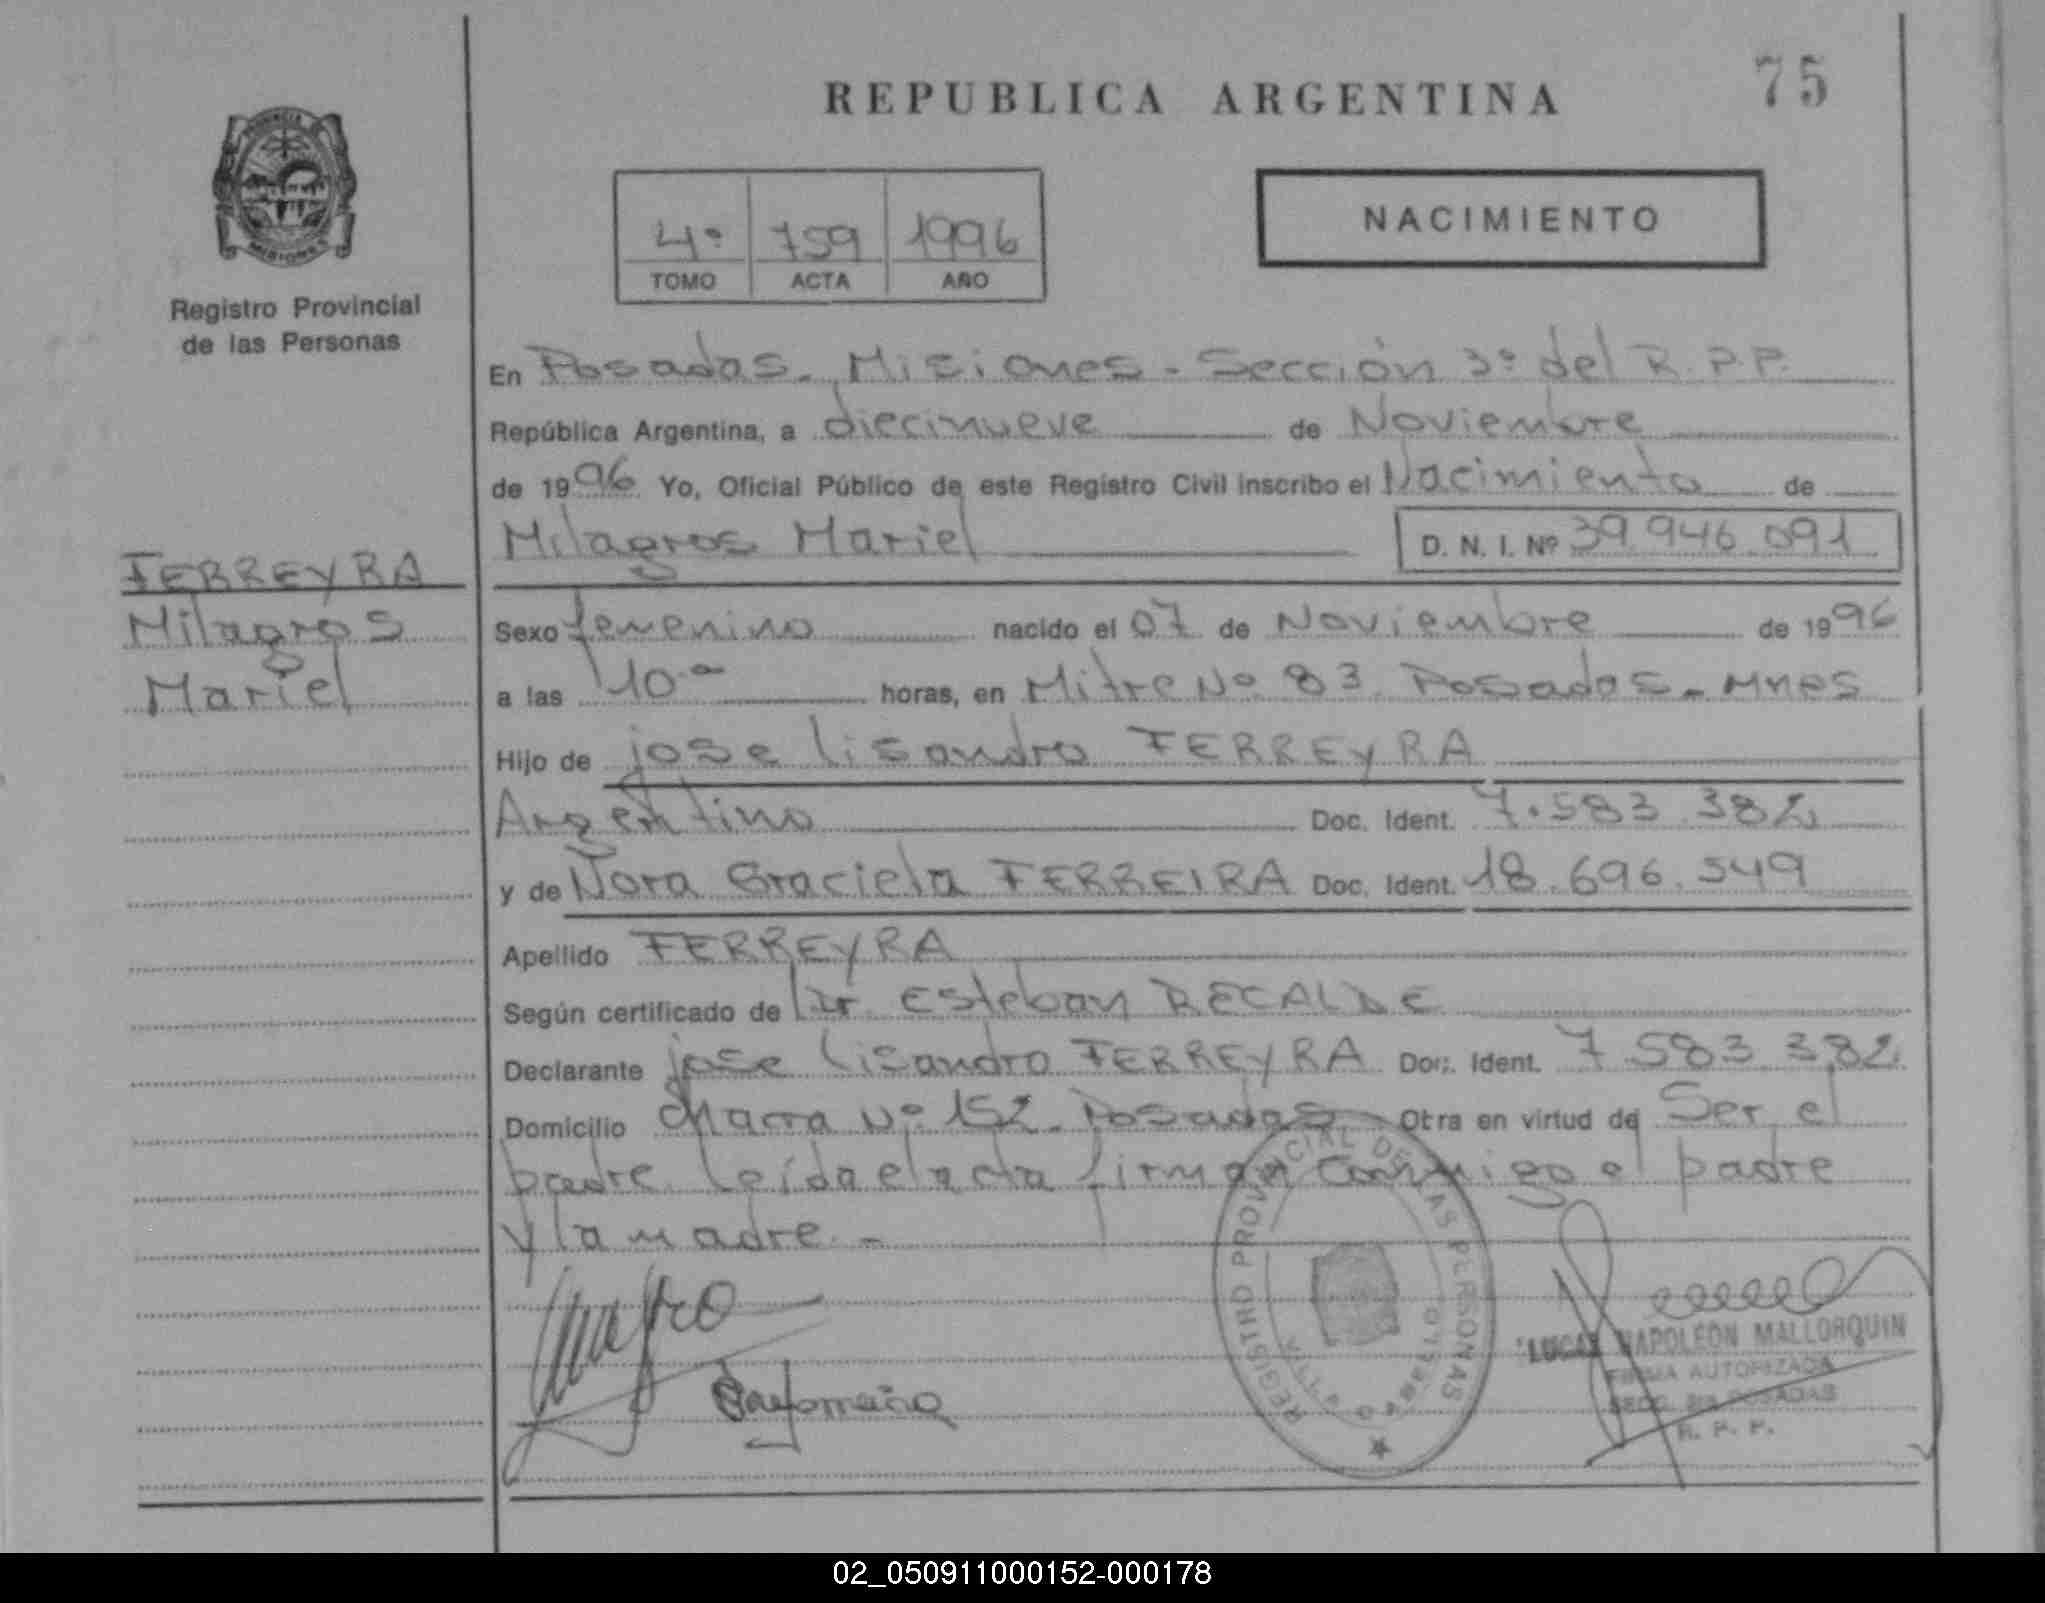 REPUBLICA ARGENTINA
75
4º 759 1996
TOMO ACTA AÑO
NACIMIENTO
PROVINCIA DE
MISIONES
Registro Provincial
de las Personas
FERREYRA
Milagros
Mariel
En Posadas - Misiones - Sección 3º del R.P.P.
República Argentina, a diecinueve de Noviembre
de 1996 Yo, Oficial Público de este Registro Civil inscribo el Nacimiento de
Milagros Mariel D. N. I. Nº 39.946.091
Sexo femenino nacido el 07 de Noviembre de 1996
a las 10 horas, en Mitre Nº 83 Posadas - Mnes
Hijo de jose lisandro FERREYRA
Argentino Doc. Ident. 7.583.382
y de Nora Graciela FERREIRA Doc. Ident. 18.696.549
Apellido FERREYRA
Según certificado de Dr Esteban RECALDE
Declarante jose lisandro FERREYRA Doc. Ident. 7.583.382
Domicilio Chacra Nº 152 - Posadas - Otra en virtud de Ser el
padre leída el acta firman conmigo el padre
y la madre. -
REGISTRO PROVINCIAL DE LAS PERSONAS
LUCAS NAPOLEON MALLORQUIN
FIRMA AUTORIZADA
SECC. 3ra POSADAS
R. P. P.
02_050911000152-000178